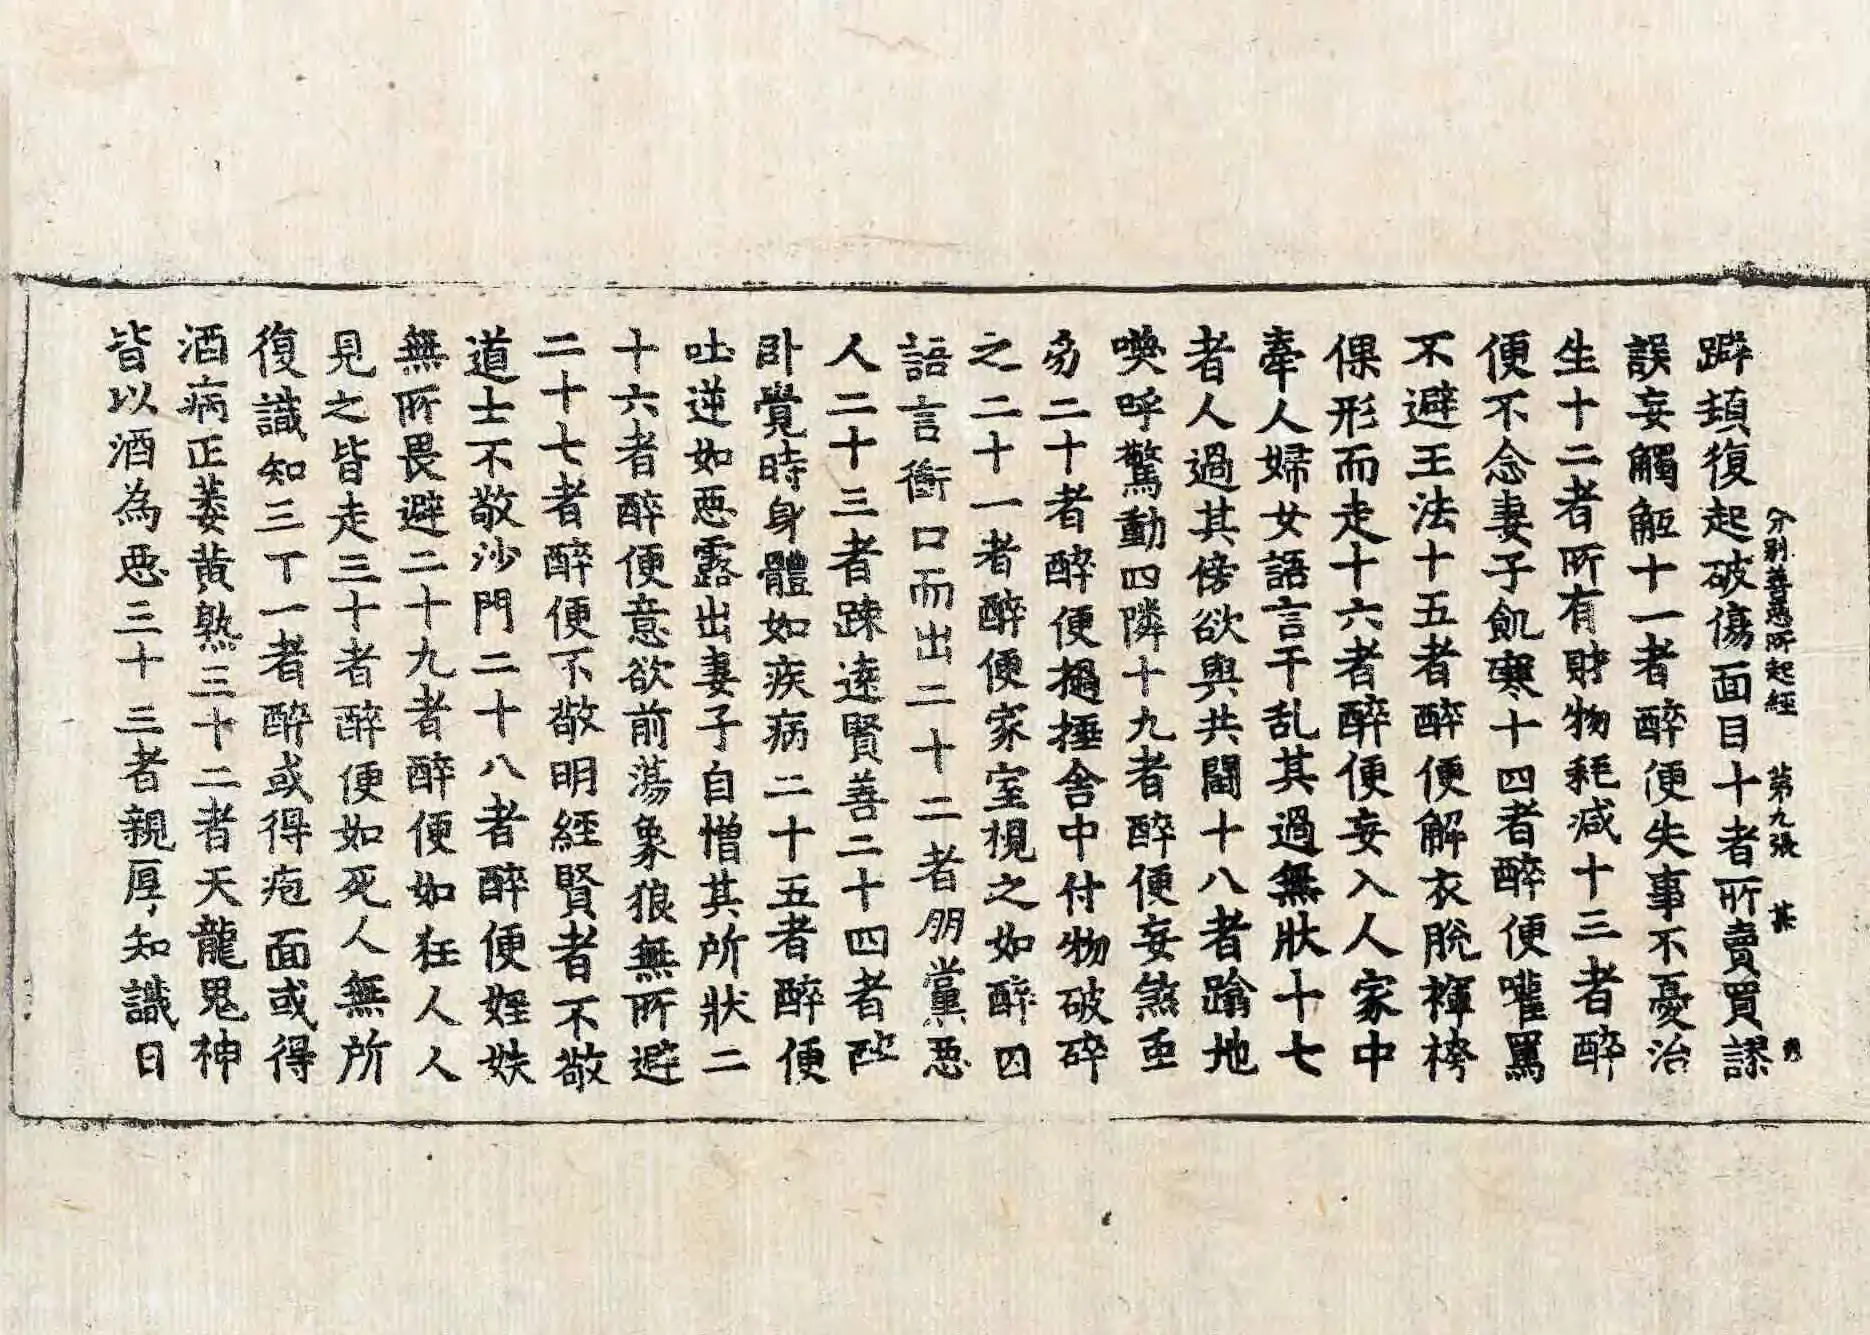 分別善惡所起經 第九張 甚
躃頓復起破傷面目十者所賣買謬
誤妄觸觝十一者醉便失事不憂治
生十二者所有財物耗减十三者醉
便不念妻子飢寒十四者醉便嚾罵
不避王法十五者醉便解衣脫褌袴
倮形而走十六者醉便妄入人家中
牽人婦女語言干乱其過無狀十七
者人過其傍欲與共鬪十八者蹋地
喚呼驚動四隣十九者醉便妄煞䖝
豸二十者醉便撾捶舍中付物破碎
之二十一者醉便家室視之如醉囚
語言衝口而出二十二者朋黨惡
人二十三者踈遠賢善二十四者醉
卧覺時身體如疾病二十五者醉便
吐逆如惡露出妻子自憎其所狀二
十六者醉便意欲前蕩象狼無所避
二十七者醉便不敬明經賢者不敬
道士不敬沙門二十八者醉便婬妷
無所畏避二十九者醉便如狂人人
見之皆走三十者醉便如死人無所
復識知三丁一者醉或得疱面或得
酒病正萎黄熟三十二者天龍鬼神
皆以酒為惡三十三者親厚知識日